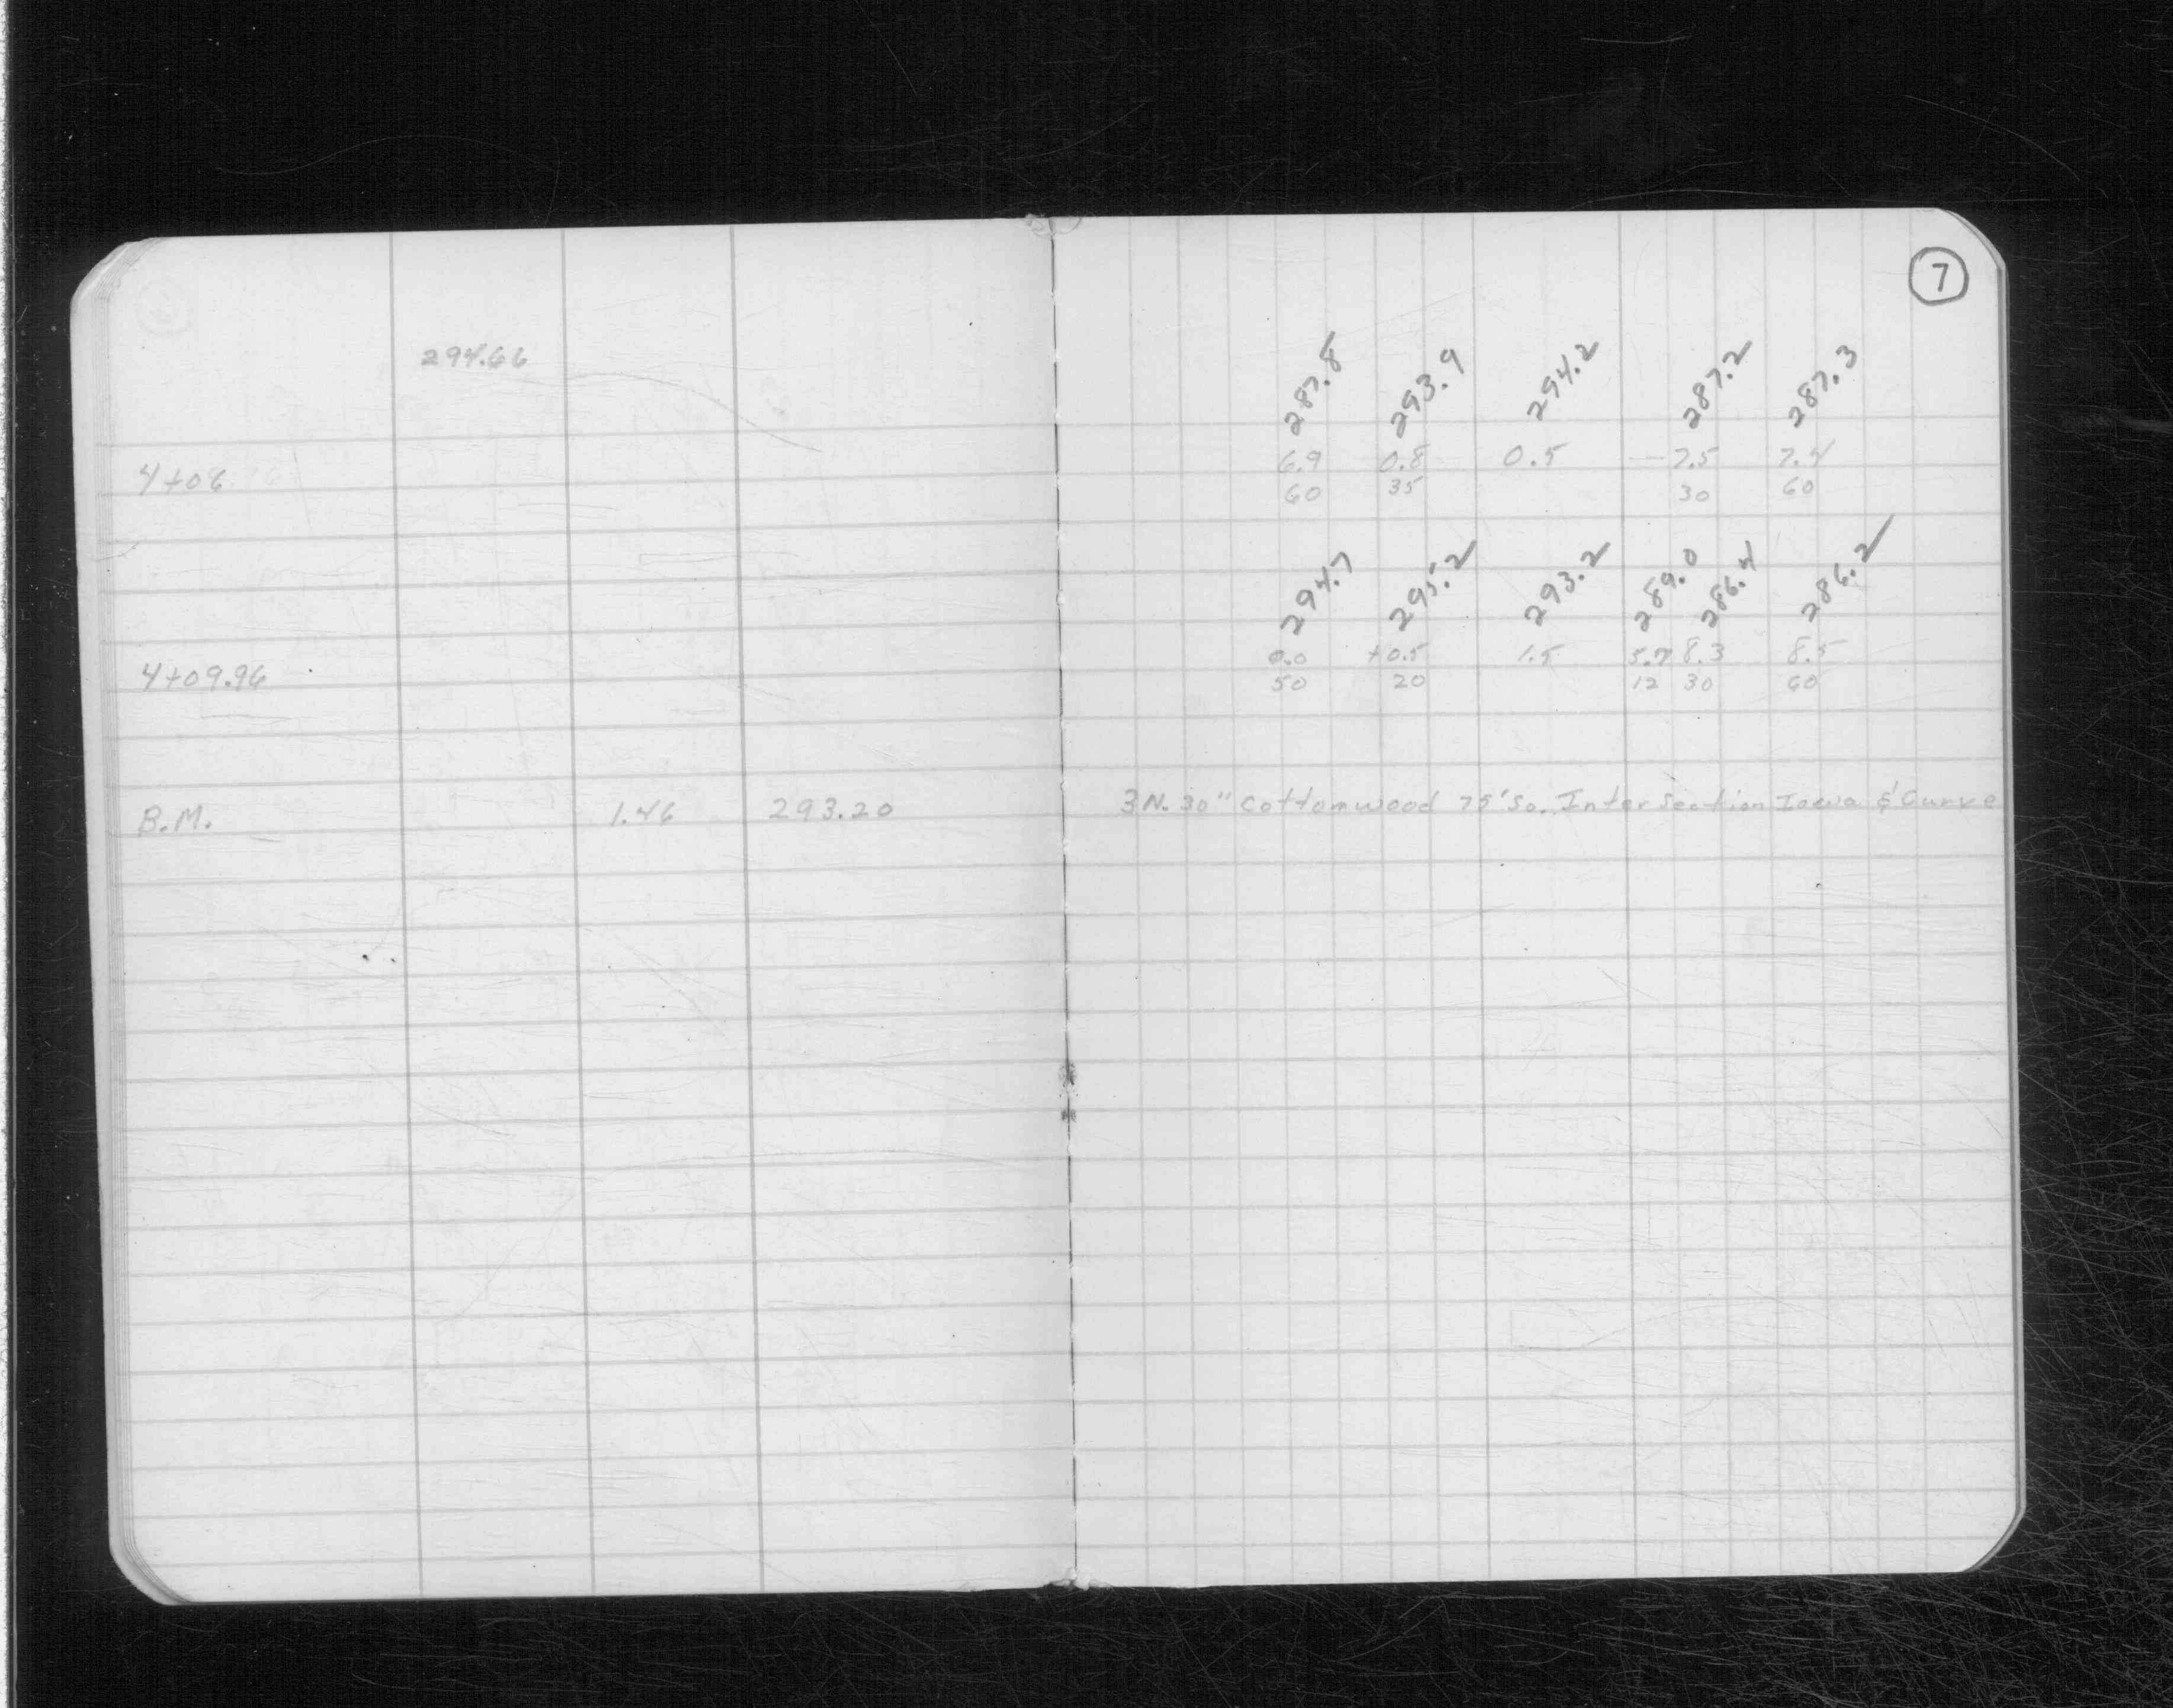 7
294.66
287.8 293.9 294.2 287.2 287.3
4+06 6.9 0.8 0.5 7.5 7.4
60 35 30 60
294.7 295.2 293.2 289.0 286.4 286.2
0.0 +0.5 1.5 5.7 8.3 8.5
4+09.96 50 20 12 30 60
B.M. 1.46 293.20 3N. 30" Cottonwood 75' So. Intersection Iowa & Curve